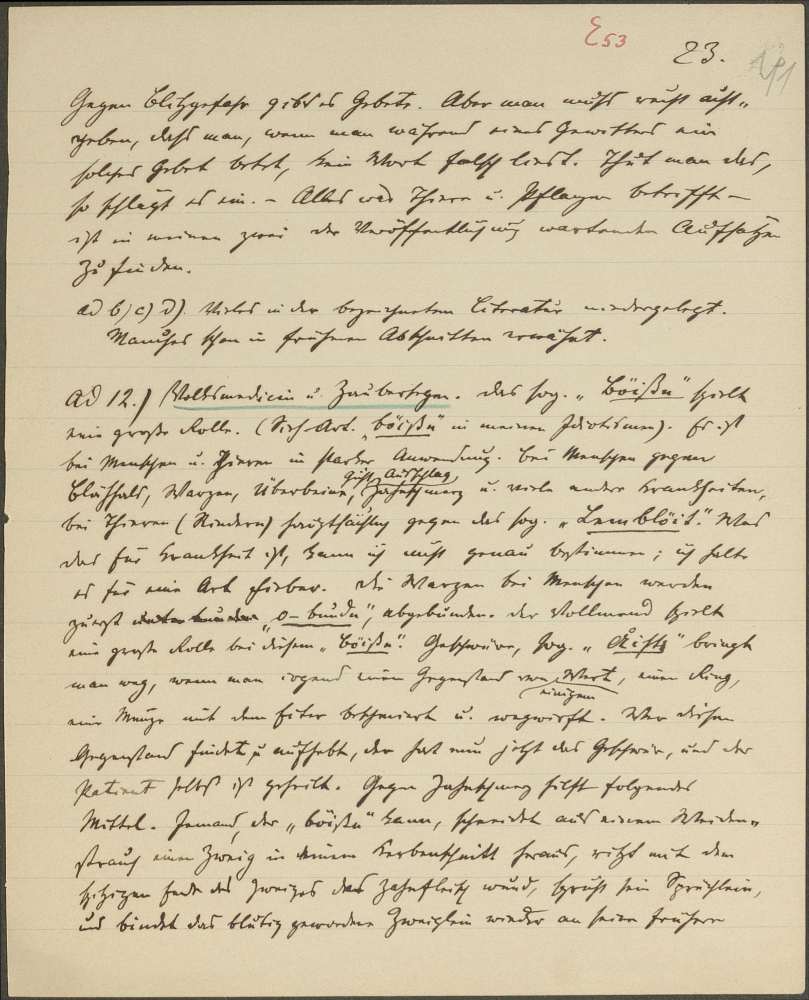 E53
23.
Gegen Blitzgefahr gibt es Gebete. Aber man muss recht acht-
geben, dass man, wenn man während eines Gewitters ein
solches Gebet betet, kein Wort falsch liest. Thut man das,
so schlägt es ein. – Alles was Thiere u. Pflanzen betrifft –
ist in meinen zwei der Veröffentlichung wartenden Aufsätzen
zu finden.
ad b) c) d). Vieles in der bezeichneten Literatur niedergelegt.
Manches schon in frühern Abschnitten erwähnt.
Ad 12.) Volksmedicin u. Zaubersegen. Das sog. "Böißn" spielt
eine grosse Rolle. (Sieh Art. "böißn" in meinen Idiotismen). Es ist
bei Menschen u. Thieren in starker Anwendung. Bei Menschen gegen
Blähhals, Warzen, Überbeine, Gicht, Ausschlag, Zahnschmerz u. viele andere Krankheiten,
bei Thieren (Rindern) hauptsächlich gegen das sog. "Lemblöit". Was
das für Krankheit ist, kann ich nicht genau bestimmen; ich halte
es für eine Art Fieber. Die Warzen bei Menschen werden
zuerst "o-bundn", abgebunden. Der Vollmond spielt
eine grosse Rolle bei diesem "böißn". Geschwüre, sog. bringt
man weg, wenn man irgend einen Gegenstand von einigem Wert, einen Ring,
eine Münze mit dem Eiter beschmiert u. wegwirft. Wer diesen
Gegenstand findet u. aufhebt, der hat nun jetzt das Geschwür, und der
Patient selbst ist geheilt. Gegen Zahnschmerz hilft folgendes
Mittel. Jemand, der "böißn" kann, schneidet aus einem Weiden-
strauch einen Zweig in einem Kerbenschnitt heraus, ritzt mit dem
spitzigen Ende des Zweiges das Zahnfleisch wund, spricht sein Sprüchlein,
und bindet das blutig gewordene Zweiglein wieder an seine frühere